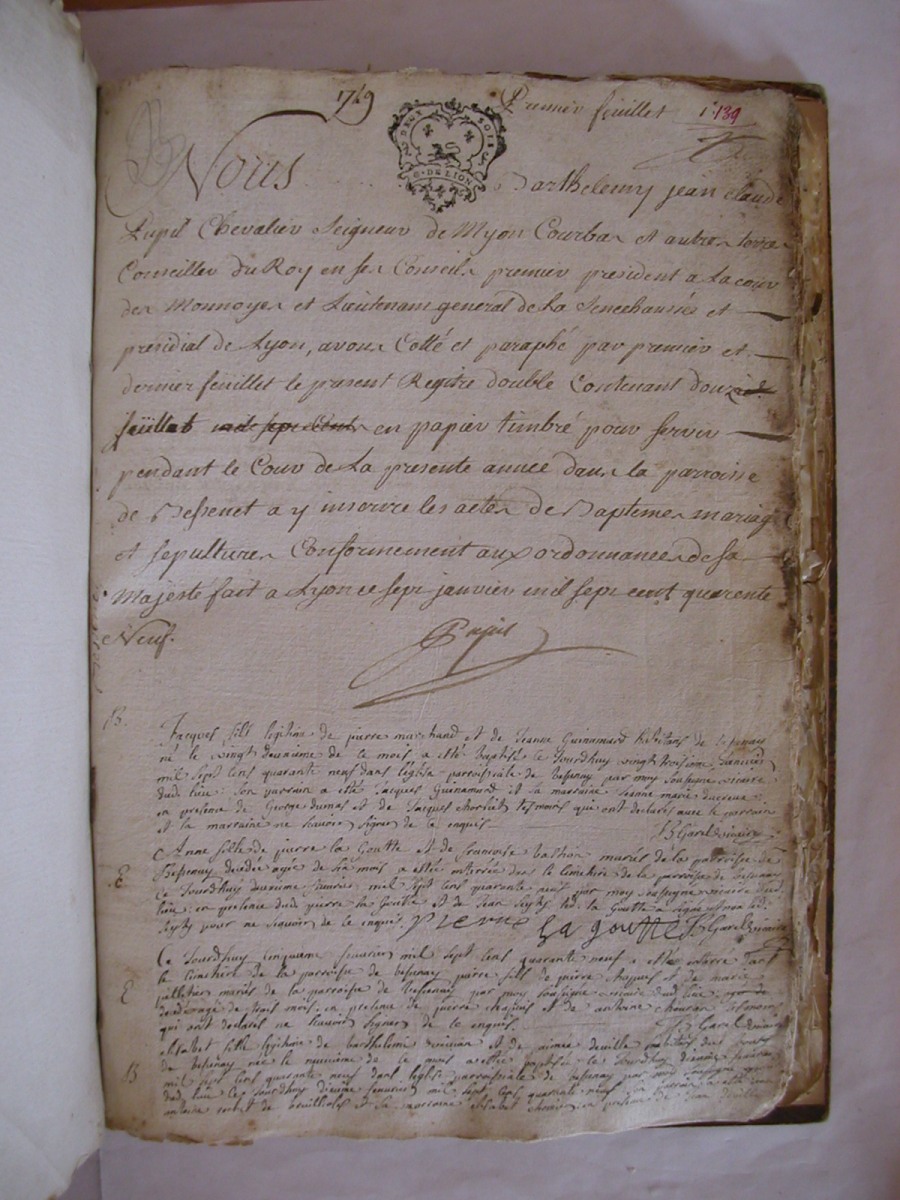 1749
Premier feuillet 1. 139
DEUX SOLS
G. DE LION
Nous Barthelemy jean claude
Pupil Chevalier Seigneur de Myon Courbas et autres terres
Conseiller du Roy en ses Conseils premier president a La cour
des Monnoyes et Lieutenant general de La Senechaussée et
presidial de Lyon, avons Cotté et paraphé par premier et
dernier feuillet le present Regitre double Contenant douze
feuillets en papier timbré pour servir
pendant le Cour de La presente année dans la parroisse
de Bessenet a y inscrire les actes de Baptemes mariag
et sepultures Conformement aux ordonnances de sa
Majesté fait a Lyon ce sept janvier mil sept cent quarente
Neuf.
Pupil
B.
Jacques fils legitime de pierre marchand et de Jeanne Guinamard habitans de bessenay
né le vingt deuxieme de ce mois a etté baptisé ce Jourdhuy vingt troisieme Janvier
mil sept cens quarante neuf dans léglise parroissiale de bessenay par moy soussigné vicaire
dud. lieu : son parrain a eté Jacques Guinamard et sa marraine Jeanne marie ducreux
en presence de George dumas et de Jacques temoins qui ont declarés avec le parrain
et la marraine ne scavoir signer de ce enquis
B Garel vicaire
E
Anne fille de pierre la Goutte et de francoise mariés de la parroisse de
Bessenay decedée agée de six mois a ettée enterrée dans le cimetiere de la parroisse de bessenay
ce Jourdhuy deuxieme fevrier mil sept cens quarante neuf par moy soussigné vicaire dud.
lieu : en presence dud. pierre la Goutte et de Jean led. la Goutte a signé et non led.
pour ne scavoir de ce enquis. Pierre la goutte B Garel vicaire
E
Ce Jourdhuy cinquieme feuvrier mil sept cens quarante neuf a etté enterré dans
le cimetiere de la parroisse de bessenay pierre fils de pierre chapuis et de marie
pelletier mariés de la parroisse de bessenay par moy soussigné vicaire dud. lieu
decedé agé de trois mois : en presence de pierre chapuis et de antoine temoins
qui ont declarés ne scavoir signer de ce enquis.
B Garel vicaire
B
Elisabet fille legitime de barthelemi et de aimée deville habitans
de bessenay née le neuvieme de ce mois a ettée baptisée ce Jourdhuy dixieme feuvrier
mil sept cens quarante neuf dans leglise parroissiale de bessenay par moy soussigné vicaire
dud. lieu ce Jourdhuy dixieme feuvrier mil sept cens quarante neuf son parrain a etté
antoine et sa marraine elisabet en presence de Jean deville